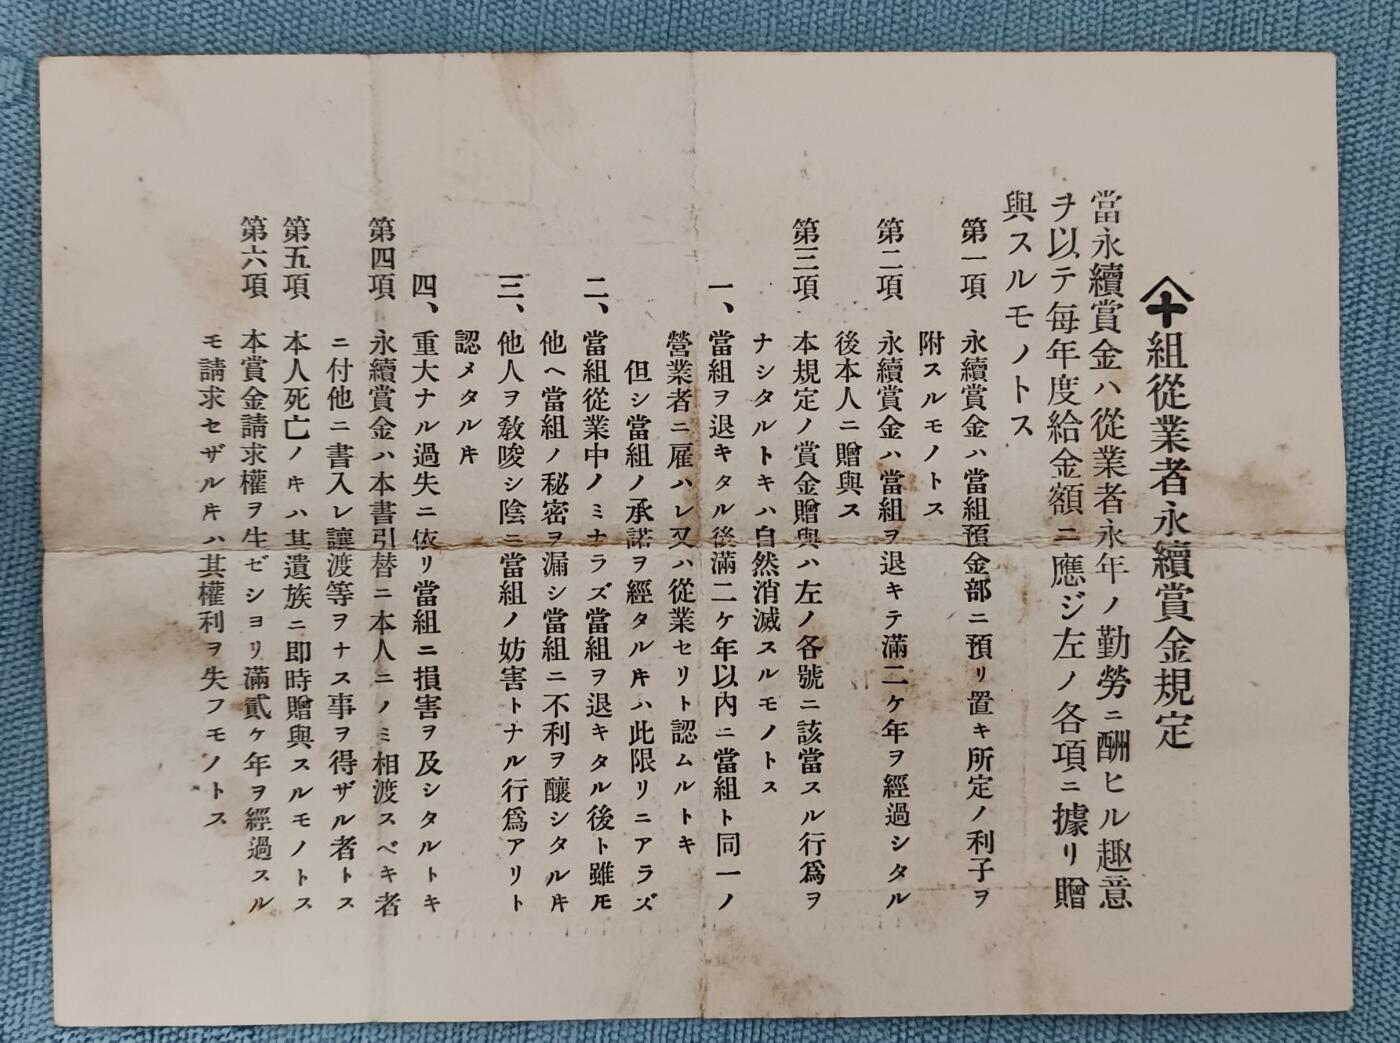 𠆢十組從業者永續賞金規定
當永續賞金ハ從業者永年ノ勤勞ニ酬ヒル趣意
ヲ以テ每年度給金額ニ應ジ左ノ各項ニ據リ贈
與スルモノトス
第一項 永續賞金ハ當組預金部ニ預リ置キ所定ノ利子ヲ
附スルモノトス
第二項 永續賞金ハ當組ヲ退キテ滿二ケ年ヲ經過シタル
後本人ニ贈與ス
第三項 本規定ノ賞金贈與ハ左ノ各號ニ該當スル行爲ヲ
ナシタルトキハ自然消滅スルモノトス
一、當組ヲ退キタル後滿二ケ年以内ニ當組ト同一ノ
營業者ニ雇ハレ又ハ從業セリト認ムルトキ
但シ當組ノ承諾ヲ經タルキハ此限リニアラズ
二、當組從業中ノミナラズ當組ヲ退キタル後ト雖モ
他ヘ當組ノ秘密ヲ漏シ當組ニ不利ヲ釀シタル𪜈
三、他人ヲ敎唆シ陰ニ當組ノ妨害トナル行爲アリト
認メタル𪜈
四、重大ナル過失ニ依リ當組ニ損害ヲ及シタルトキ
第四項 永續賞金ハ本書引替ニ本人ニノミ相渡スベキ者
ニ付他ニ書入レ讓渡等ヲナス事ヲ得ザル者トス
第五項 本人死亡ノ𪜈ハ其遺族ニ即時贈與スルモノトス
第六項 本賞金請求權ヲ生ゼシヨリ滿貳ケ年ヲ經過スル
モ請求セザル𪜈ハ其權利ヲ失フモノトス